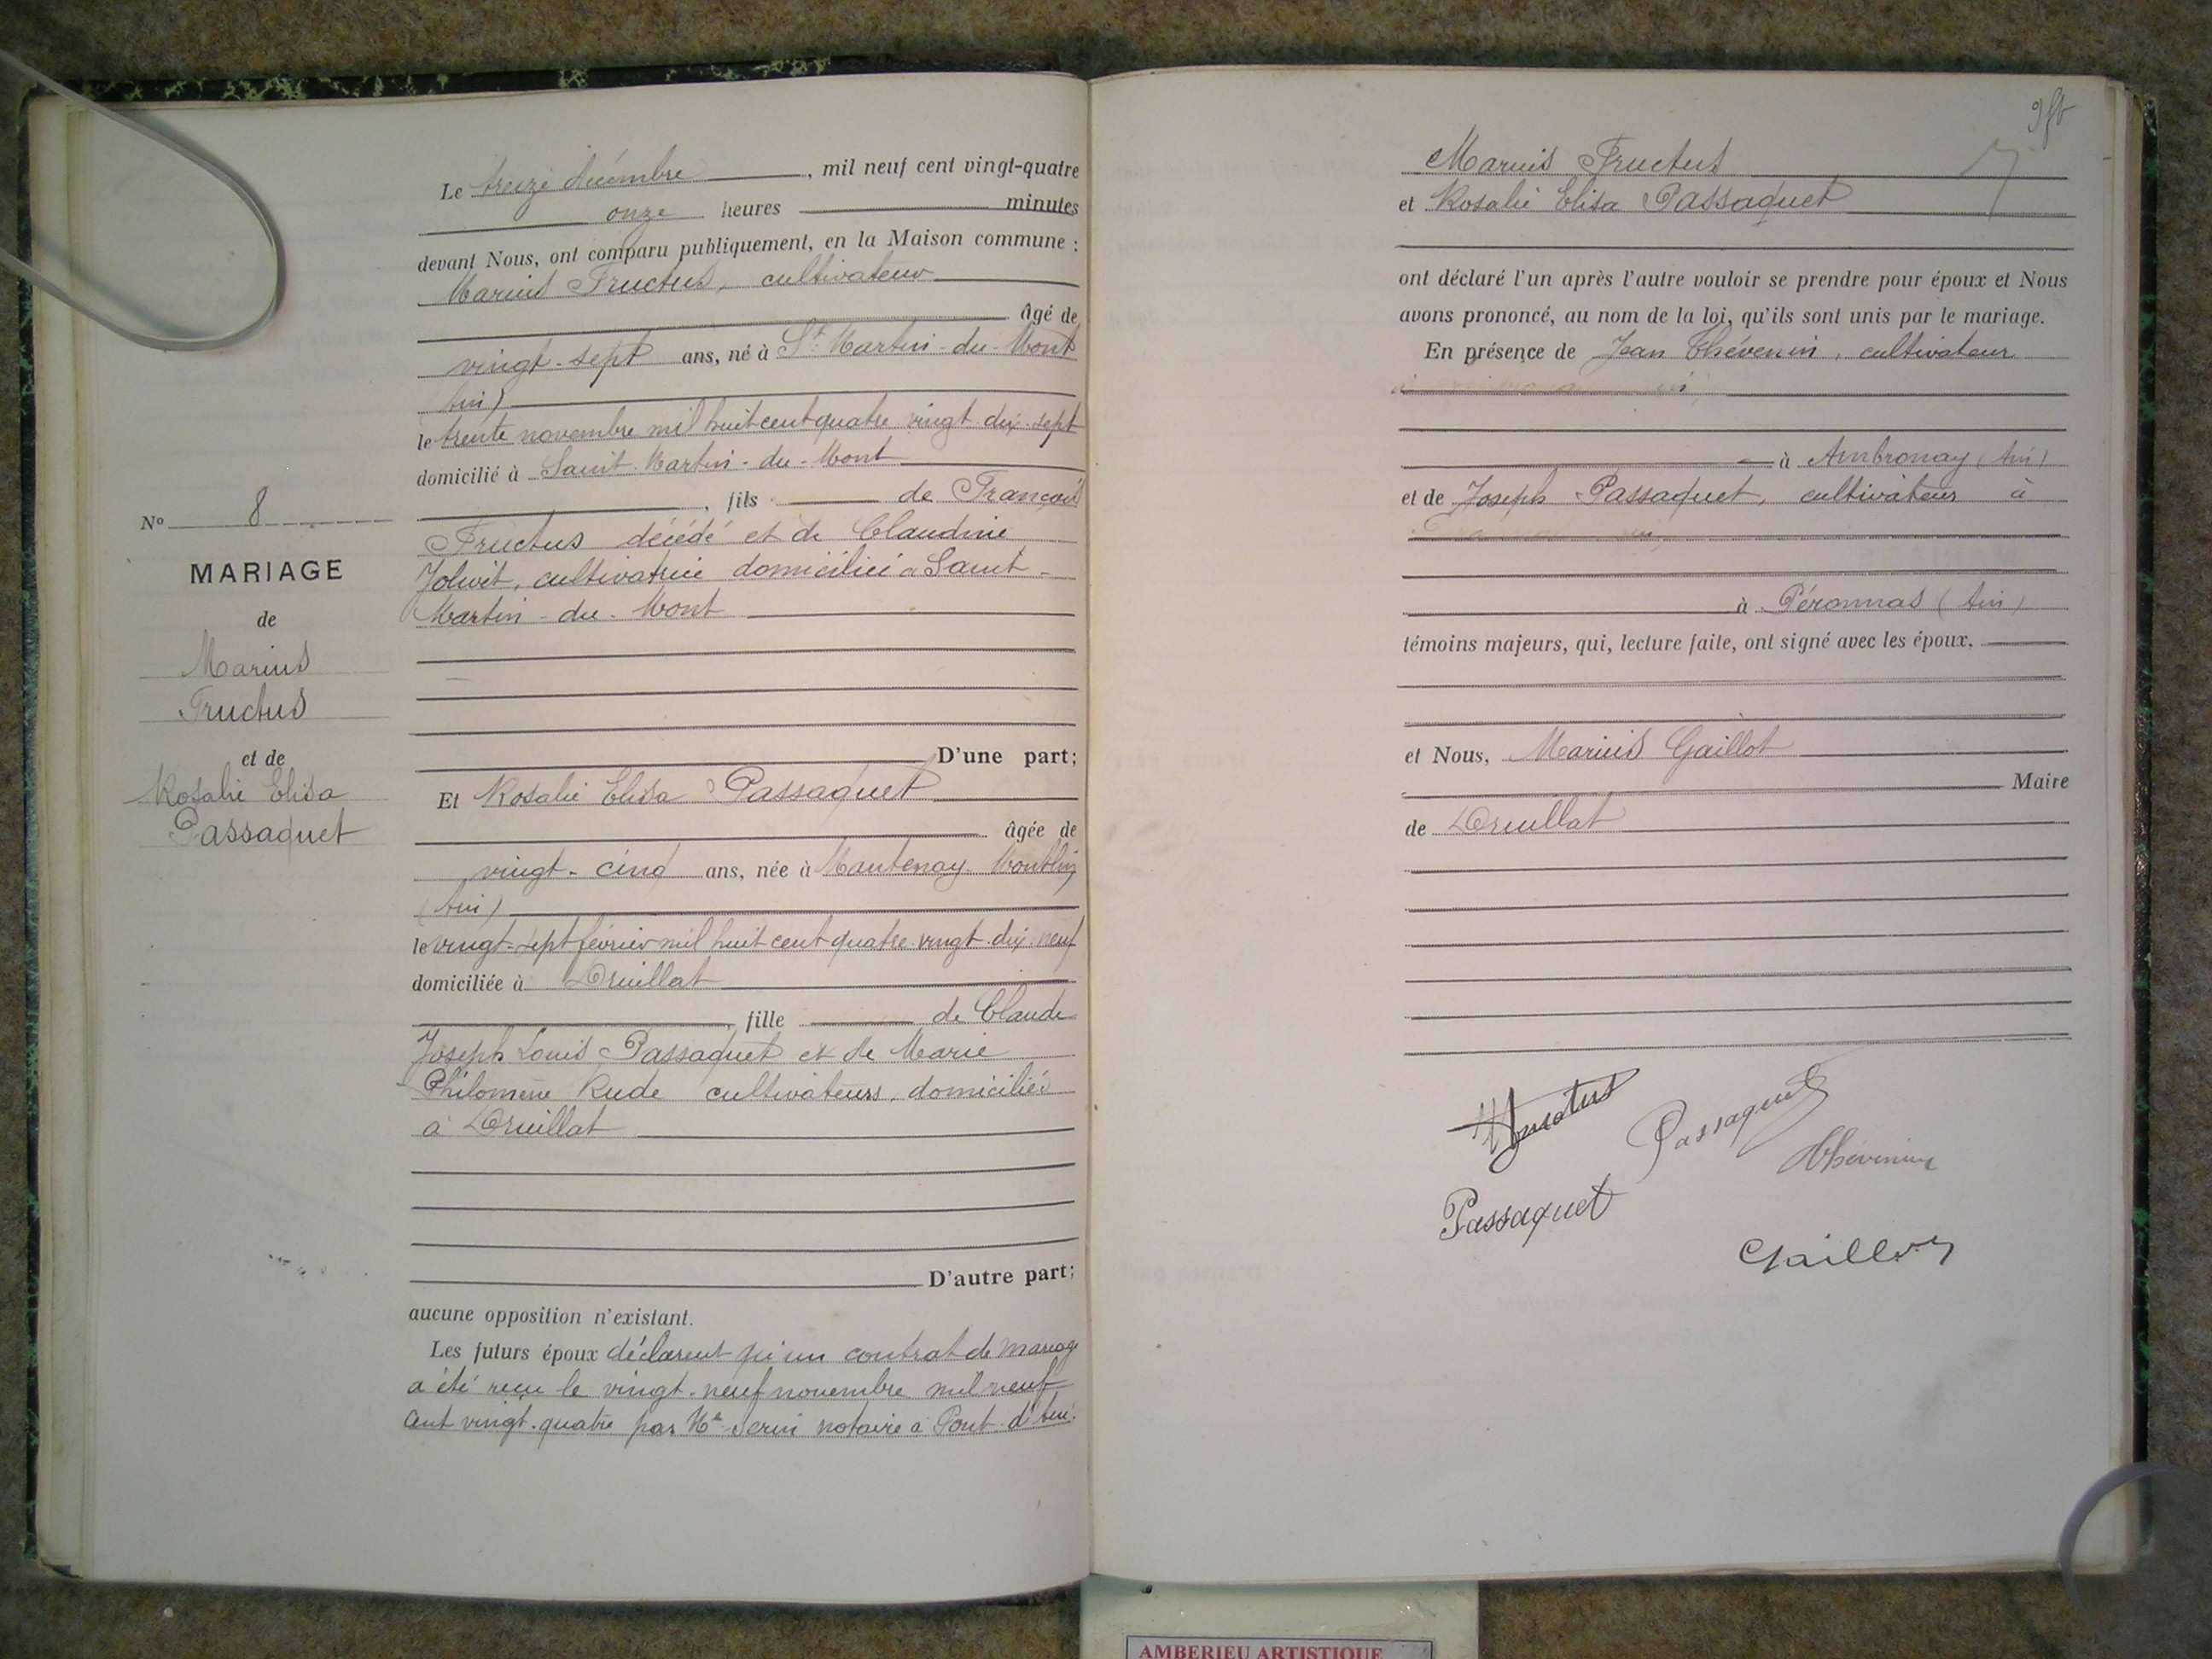 Le treize décembre, mil neuf cent vingt-quatre
onze heures minutes
devant Nous, ont comparu publiquement, en la Maison commune :
Marius Fructus, cultivateur
âgé de
vingt-sept ans, né à St Martin-du-Mont
(Ain)
le trente novembre mil huit cent quatre vingt dix-sept
domicilié à Saint-Martin-du-Mont
, fils de François
Fructus décédé et de Claudine
Jolivet, cultivatrice domiciliée à Saint-
Martin-du-Mont
D'une part;
Et Rosalie Elisa Passaquet
âgée de
vingt-cinq ans, née à Mantenay-Montlin
(Ain)
le vingt-sept février mil huit cent quatre vingt dix neuf
domiciliée à Druillat
, fille de Claude
Joseph Louis Passaquet et de Marie
Philomène Rude cultivateurs, domiciliés
à Druillat
D'autre part;
aucune opposition n'existant.
Les futurs époux déclarent qu'un contrat de mariage
a été reçu le vingt-neuf novembre mil neuf
cent vingt-quatre par Me notaire à Pont-d'Ain.
No 8
MARIAGE
de
Marius
Fructus
et de
Rosalie Elisa
Passaquet
Marius Fructus
et Rosalie Elisa Passaquet
ont déclaré l'un après l'autre vouloir se prendre pour époux et Nous
avons prononcé, au nom de la loi, qu'ils sont unis par le mariage.
En présence de Jean Thévenin, cultivateur
à Ambronay (Ain)
et de Joseph Passaquet, cultivateur à
à Péronnas (Ain)
témoins majeurs, qui, lecture faite, ont signé avec les époux.
et Nous, Marius Gaillot
Maire
de Druillat
Fructus
Passaquet
Thévenin
Passaquet
Gaillot
AMBERIEU ARTISTIQUE